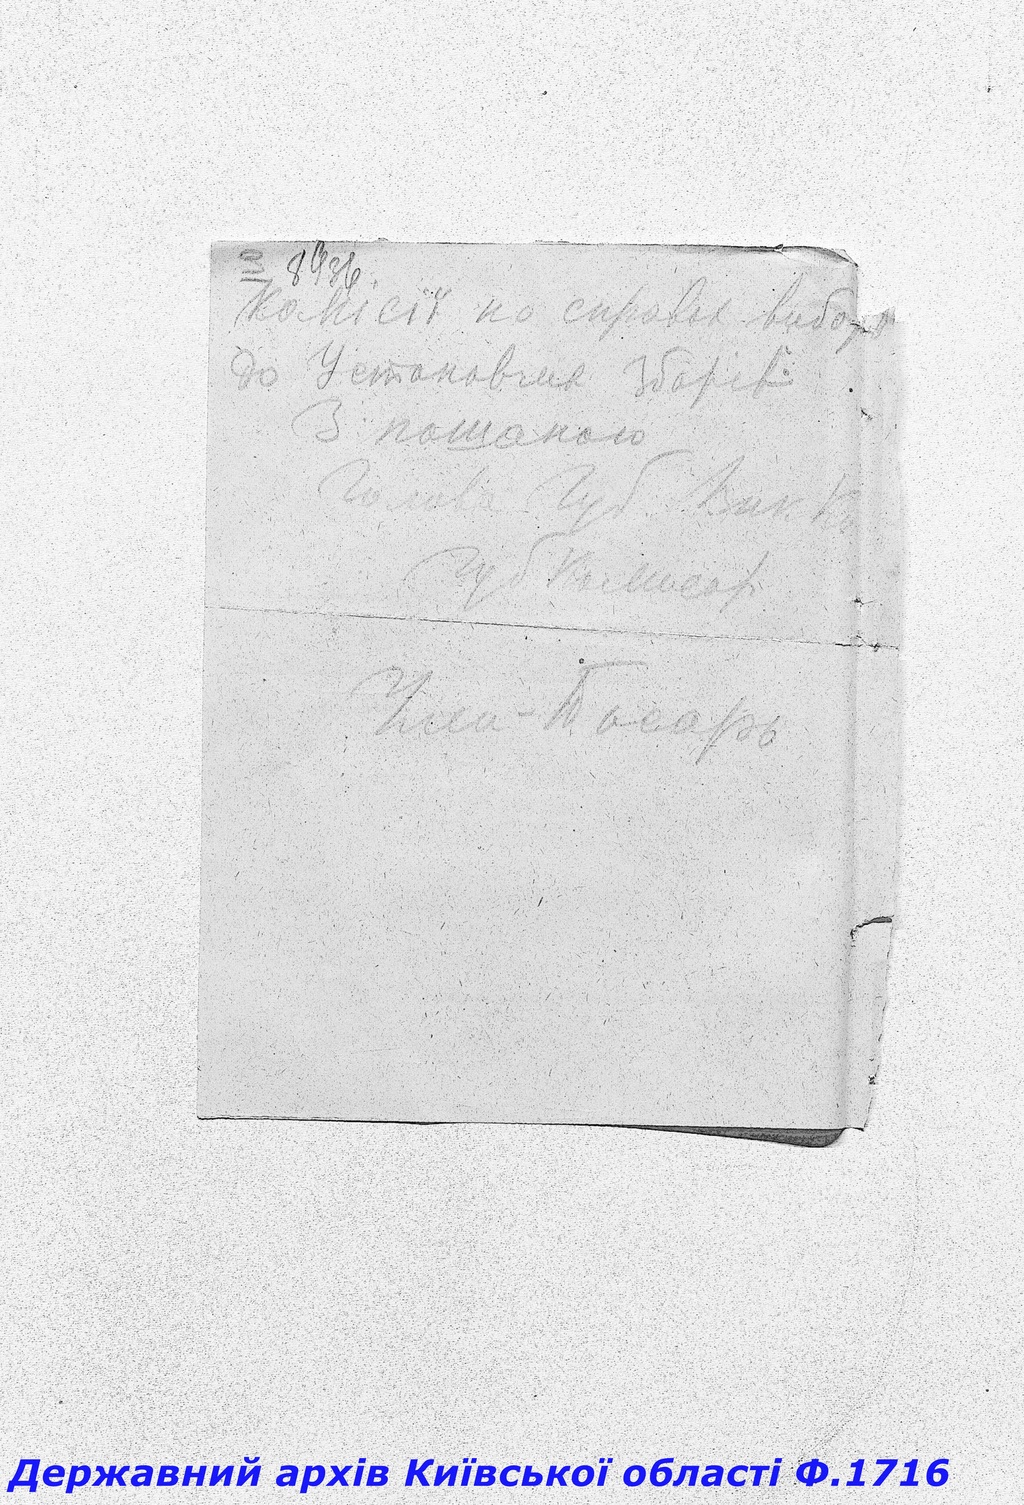 3
Комісії по справах вибор
до Установчих Зборів
З пошаною
Голова Губ. Вик. Ко
Губ Комисар
Писарь
Державний архів Київської області Ф.1716